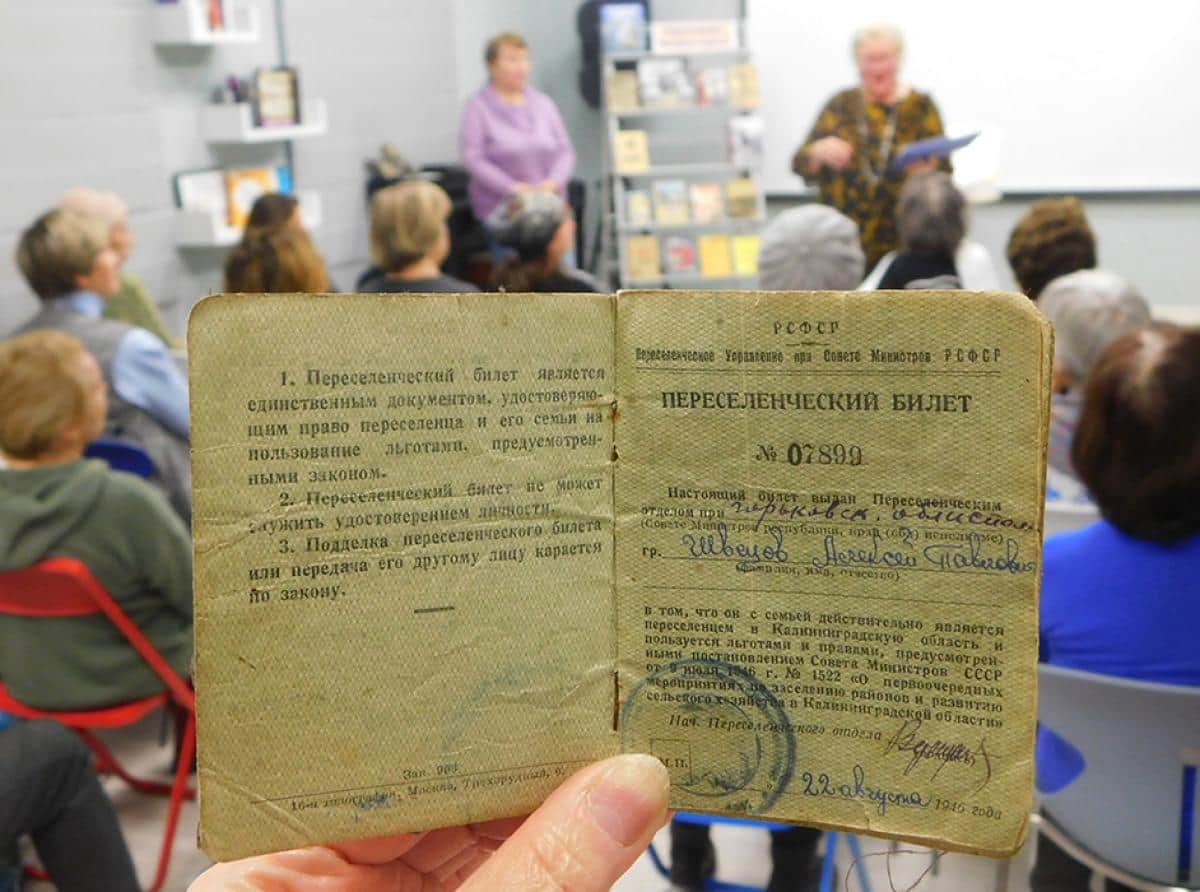 1. Переселенческий билет является
единственным документом, удостоверяю-
щим право переселенца и его семьи на
пользование льготами, предусмотрен-
ными законом.
2. Переселенческий билет не может
служить удостоверением личности.
3. Подделка переселенческого билета
или передача его другому лицу карается
по закону.
Зак. 991
16-я типография, Москва, Трехпрудный, 9
РСФСР
Переселенческое Управление при Совете Министров РСФСР
ПЕРЕСЕЛЕНЧЕСКИЙ БИЛЕТ
№ 07899
Настоящий билет выдан Переселенческим
отделом при горьковск. облисполк
(Совете Министров республики, край (обл) исполкоме)
гр. Швецов Алексей Павлович
(фамилия, имя, отчество)
в том, что он с семьей действительно является
переселенцем в Калининградскую область и
пользуется льготами и правами, предусмотрен-
ными постановлением Совета Министров СССР
от 9 июля 1946 г. № 1522 «О первоочередных
мероприятиях по заселению районов и развитию
сельского хозяйства в Калининградской области»
Нач. Переселенческого отдела
М.П.
22 августа 1946 года